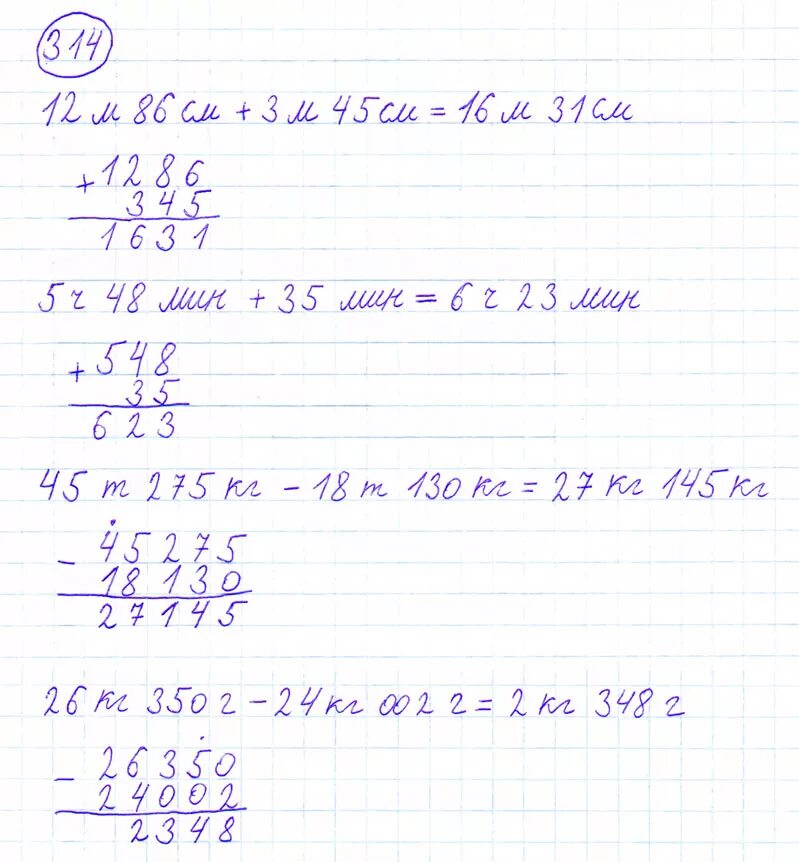 314
12 м 86 см + 3 м 45 см = 16 м 31 см
+ 1286
345
1631
5 ч 48 мин + 35 мин = 6 ч 23 мин
+ 548
35
623
45 т 275 кг - 18 т 130 кг = 27 кг 145 кг
- 45275
18130
27145
26 кг 350 г - 24 кг 002 г = 2 кг 348 г
- 26350
24002
2348